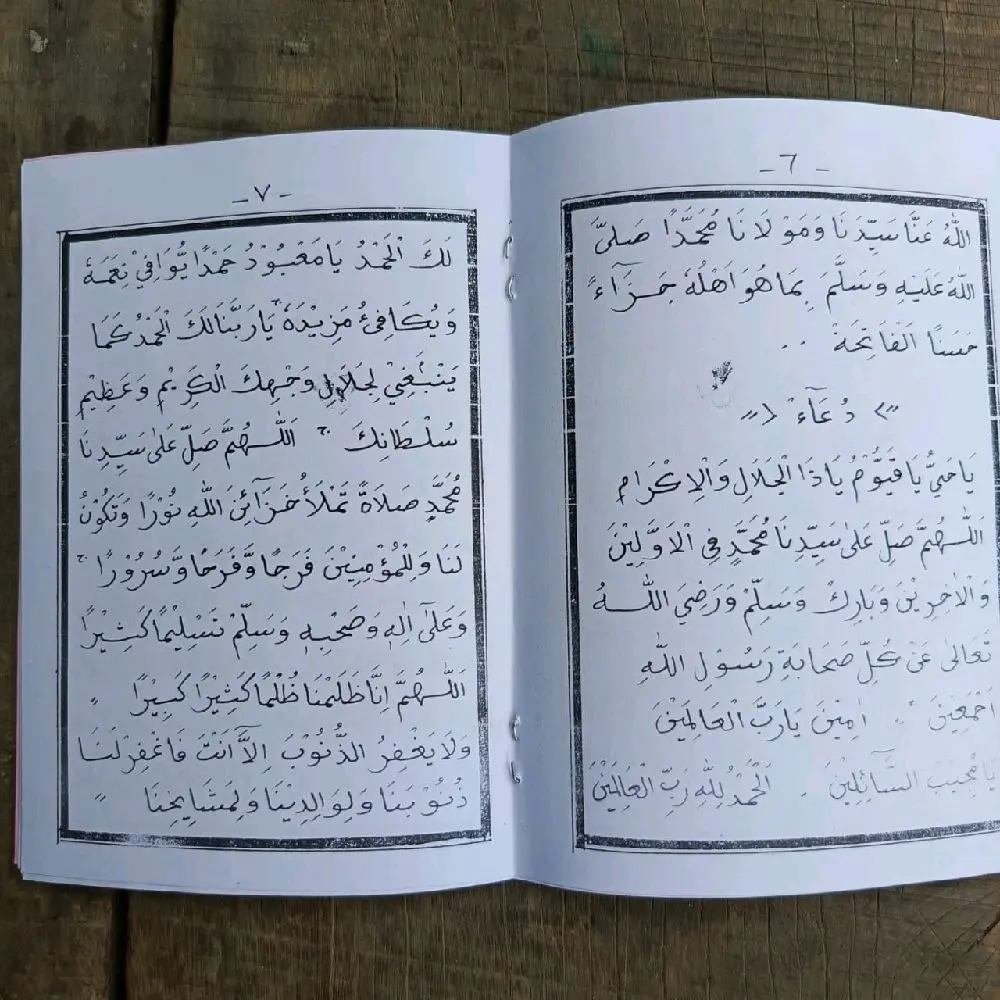 - ٦ -
اللّٰهُ عَنَّا سَيِّدَنَا وَمَوْلَانَا مُحَمَّدًا صَلَىَّ
اللّٰهُ عَلَيْهِ وَسَلَّمَ بِمَا هُوَ اَهْلُهُ جَزَآءً
حَسَنًا اَلفَاتِحَةْ ..
دُعَآءْ
يَاحَيُّ يَا قَيُّوْمُ يَاذَا الْجَلَالِ وَالْاِكْرَامِ
اَللّٰهُمَّ صَلِّ عَلىٰ سَيِّدِنَا مُحَمَّدٍ فِي الْاَوَّلِيْنَ
وَالْاٰخِرِيْنَ وَبَارِكْ وَسَلِّمْ وَرَضِيَ اللّٰهُ
تَعَالىٰ عَنْ كُلِّ صَحَابَةِ رَسُوْلِ اللّٰهِ
اَجْمَعِيْنَ .. اٰمِيْنَ يَارَبَّ الْعَالَمِيْنَ
يَا مُجِيْبَ السَّآئِلِيْنَ . اَلْحَمْدُ لِلّٰهِ رَبِّ الْعَالَمِيْنَ
- ٧ -
لَكَ الْحَمْدُ يَا مَعْبُوْدُ حَمْدًا يُّوَافِيْ نِعَمَهٗ
وَيُكَافِئُ مَزِيْدَهٗ يَارَبَّنَا لَكَ الْحَمْدُ كَمَا
يَنْبَغِيْ لِجَلَالِ وَجْهِكَ الْكَرِيْمِ وَعَظِيْمِ
سُلْطَانِكَ ج اَللّٰهُمَّ صَلِّ عَلىٰ سَيِّدِنَا
مُحَمَّدٍ صَلَاةً تَمْلَأُ خَزَآئِنَ اللّٰهِ نُوْرًا وَتَكُوْنُ
لَنَا وَلِلْمُؤْمِنِيْنَ فَرَجًا وَّفَرَحًا وَّسُرُوْرًا ج
وَعَلىٰٓ اٰلِهٖ وَصَحْبِهٖ وَسَلِّمْ تَسْلِيْمًا كَثِيْرًا
اَللّٰهُمَّ اِنَّا ظَلَمْنَا ظُلْمًا كَثِيْرًا كَبِيْرًا
وَلَا يَغْفِرُ الذُّنُوْبَ اِلَّا اَنْتَ فَاغْفِرْ لَنَا
ذُنُوْبَنَا وَلِوَالِدِيْنَا وَلِمَشَايِخِنَا